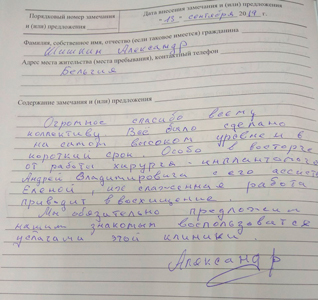 Порядковый номер замечания
и (или) предложения
Дата внесения замечания и (или) предложения
"13" сентября 2019 г.
Фамилия, собственное имя, отчество (если таковое имеется) гражданина
Шишкин Александр
Адрес места жительства (места пребывания), контактный телефон
Бельгия
Содержание замечания и (или) предложения
Огромное спасибо всему
коллективу. Всё было сделано
на самом высоком уровне и в
короткий срок. Особо в восторге
от работы хирурга - имплантолога
Андрея Владимировича с его ассист
Еленой, их слаженная работа
приводит в восхищение.
Мы обязательно предложим
нашим знакомым воспользоваться
услугами этой клиники.
Александр